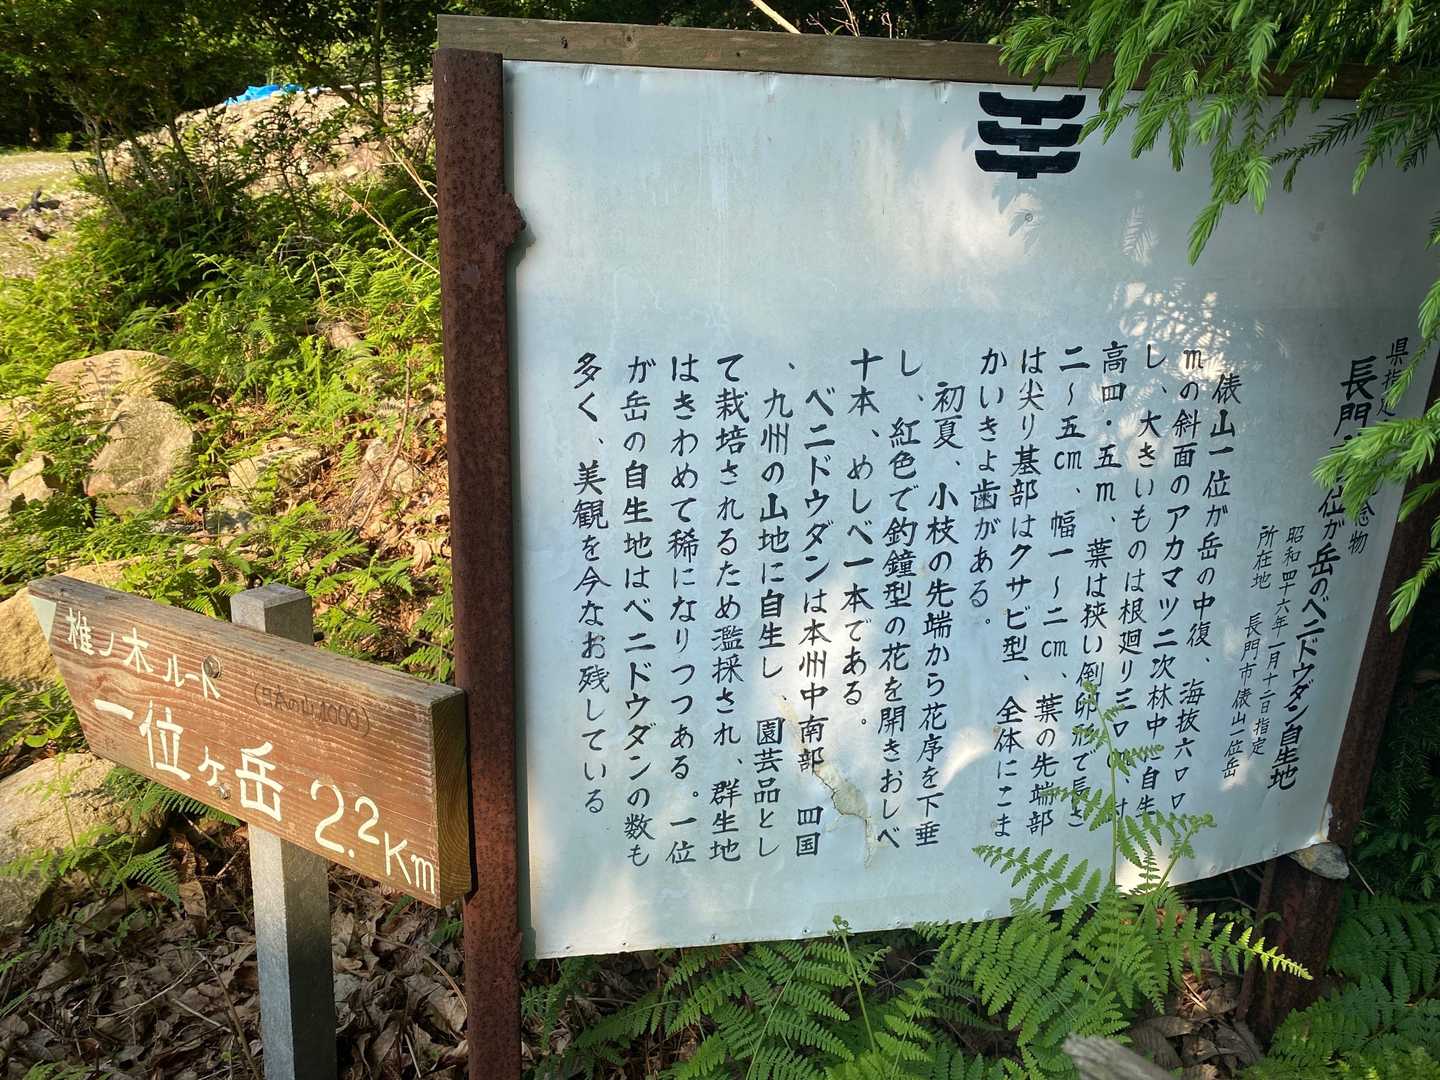 県指定
念物
長門
位が岳のベニドウダン自生地
昭和四十六年一月十二日指定
所在地 長門市俵山一位岳
俵山一位が岳の中復、海抜六ロロ
mの斜面のアカマツ二次林中に自生
し、大きいものは根廻り三ロ
高四・五m、葉は狭い倒卵形で長さ
二〜五㎝、幅一〜二㎝、葉の先端部
は尖り基部はクサビ型、全体にこま
かいきよ歯がある。
初夏、小枝の先端から花序を下垂
し、紅色で釣鐘型の花を開きおしべ
十本、めしべ一本である。
ベニドウダンは本州中南部 四国
、九州の山地に自生し、園芸品とし
て栽培されるため濫採され、群生地
はきわめて稀になりつつある。一位
が岳の自生地はベニドウダンの数も
多く、美観を今なお残している
椎ノ木ルート
(日本の山1000)
一位ヶ岳 2.2Km